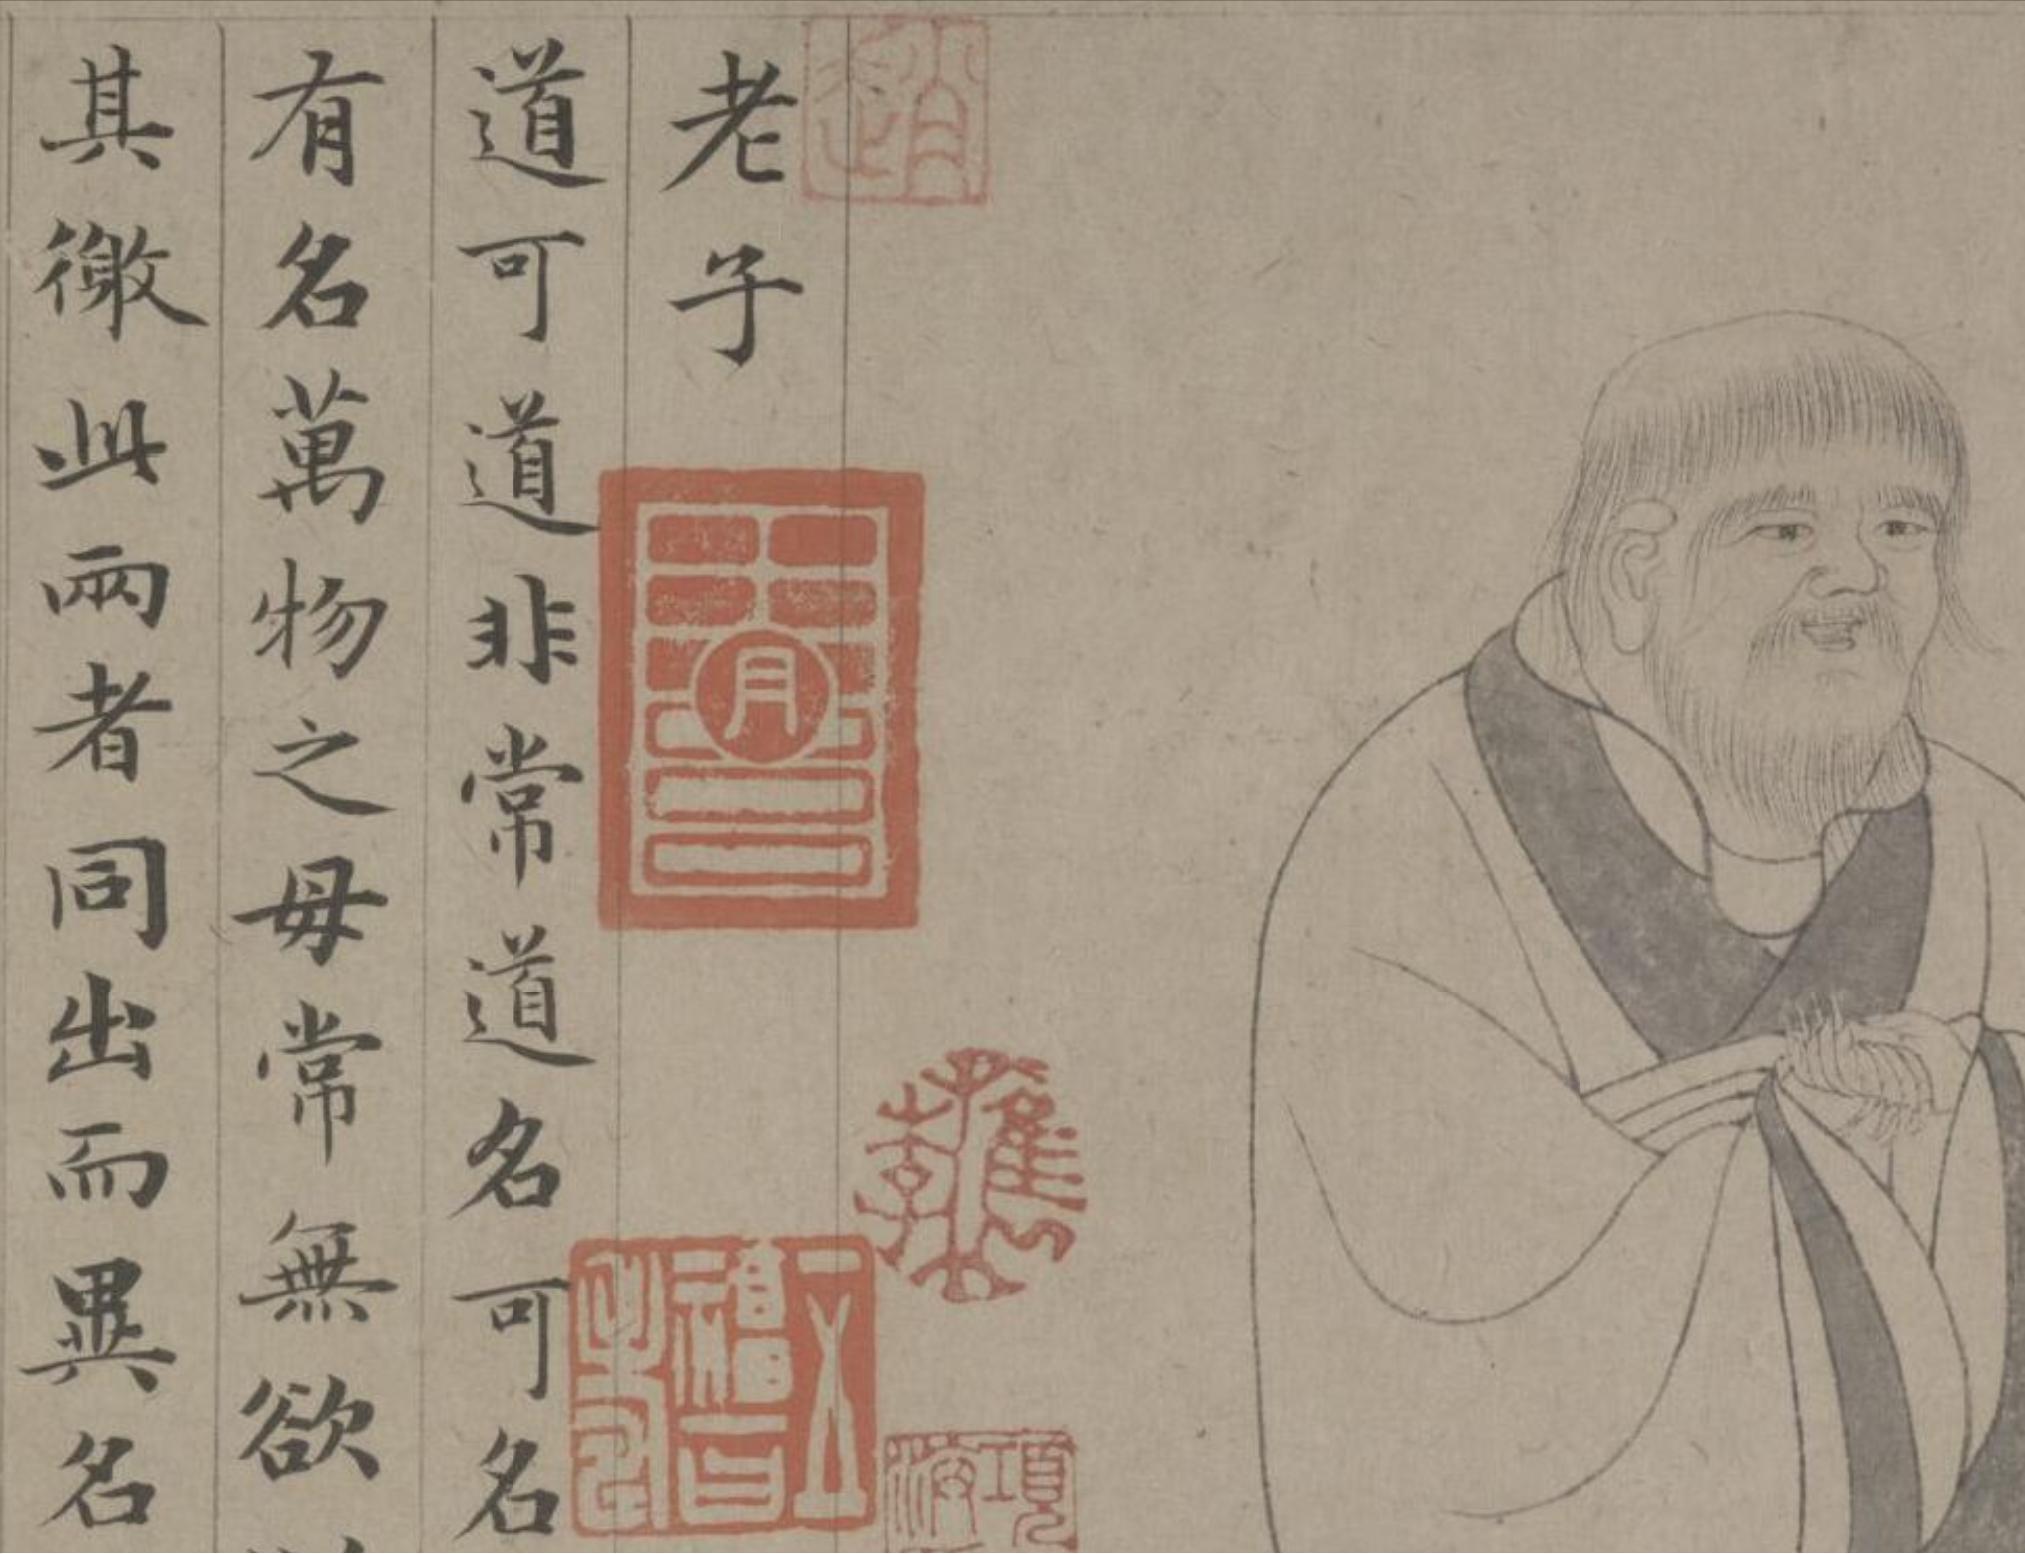 老子
道可道非常道名可名
有名萬物之母常無欲
其徼此兩者同出而異名
月
五福五
項